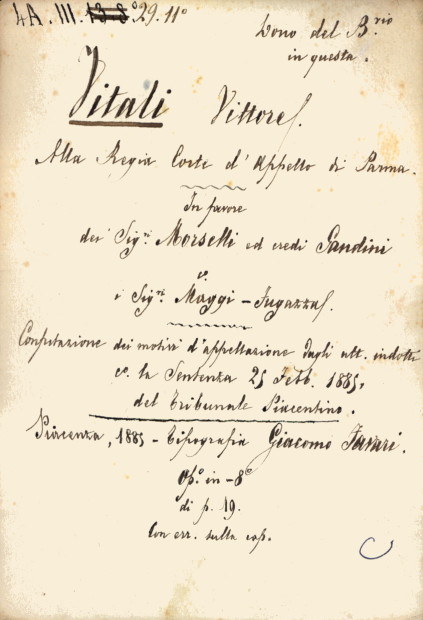 4A. III. 13. 8° 29. 11°
Dono del B.rio
in questa.
Vitali Vittore/.
Alla Regia Corte d'Appello di Parma.
In favore
dei Sig.ri Morselli ed eredi Pandini
c°
i Sig.ri Maggi-Fugazza/.
Confutazione dei motivi d'appellazione dagli att. indotti
c°. la Sentenza 25 Febb. 1885,
del Tribunale Piacentino.
Piacenza, 1885 - Tipografia Giacomo Favari.
Op.° in-8°
di p. 19.
Con err. sulla cop.